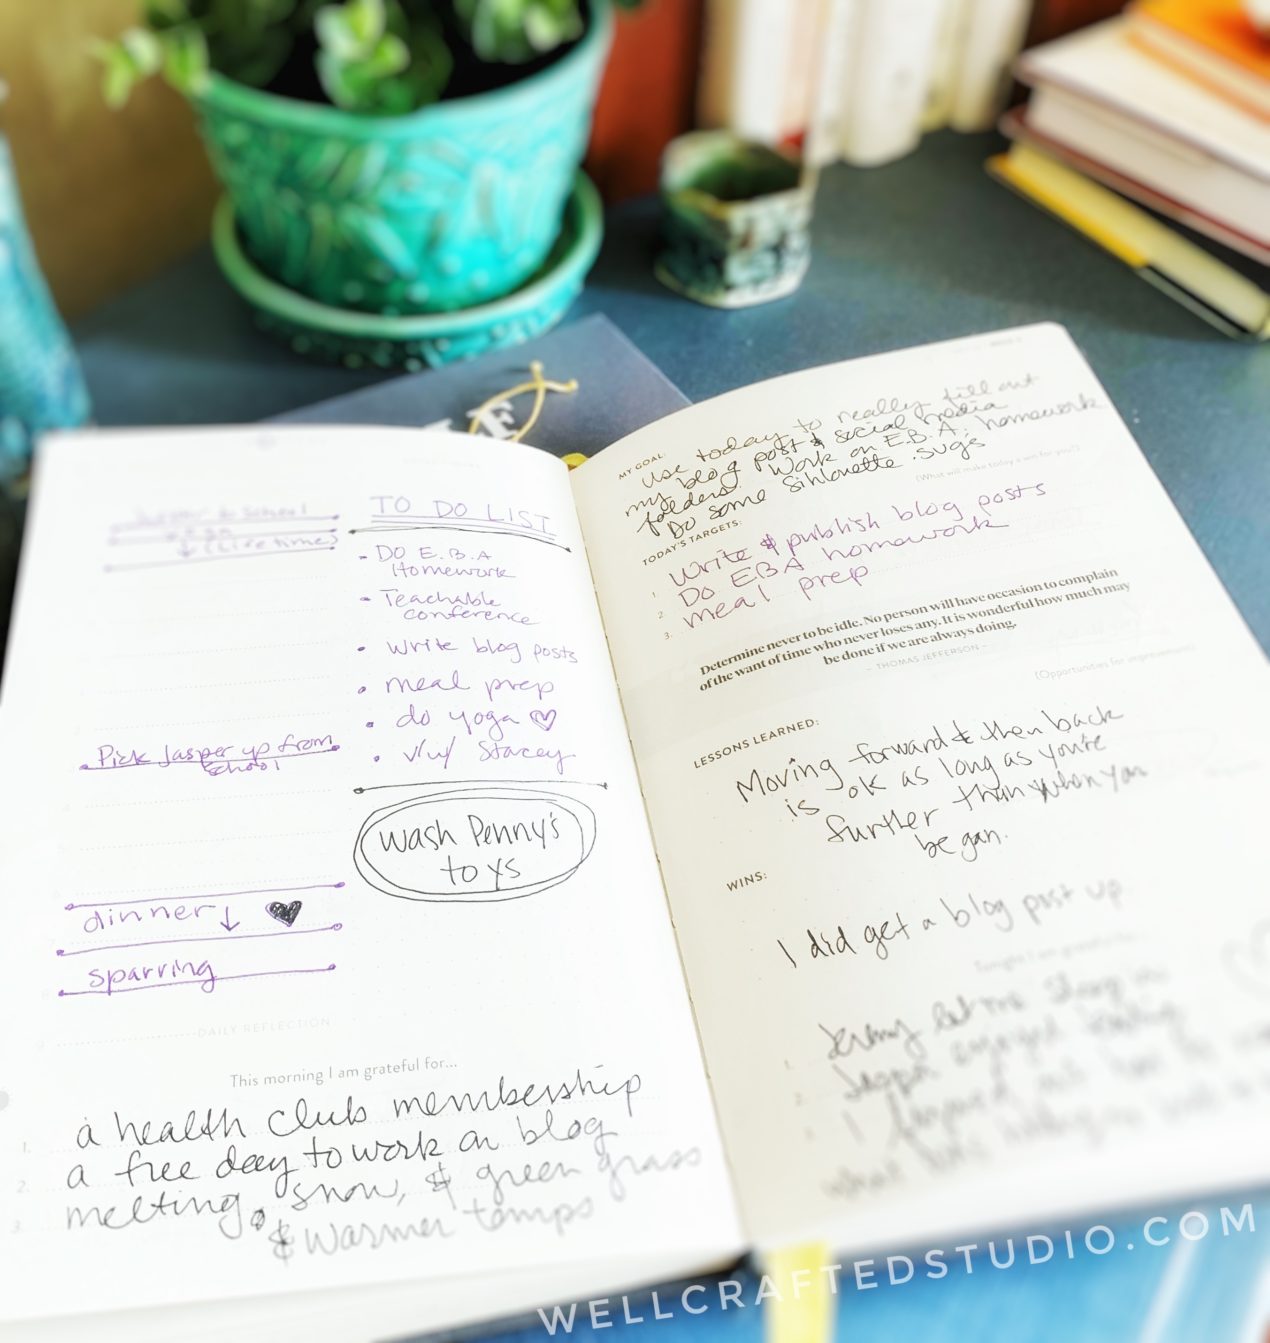 school
(Lifetime)
TO DO LIST
DO E.B.A
Homework
Teachable
conference
write blog posts
meal prep
do yoga
Stacey
Pick Jasper up from
school
wash Penny's
toys
dinner
sparring
DAILY REFLECTION
This morning I am grateful for...
1. a health club membership
2. a free day to work on blog
3. melting snow, & green grass
& warmer temps
MY GOAL:
Use today to really fill out
my blog post & social media
folders! Work on E.B.A. homework
Do some Sihlouette .svgs
(What will make today a win for you?)
TODAY'S TARGETS:
1. Write & publish blog posts
2. DO EBA homework
3. meal prep
Determine never to be idle. No person will have occasion to complain
of the want of time who never loses any. It is wonderful how much may
be done if we are always doing.
- THOMAS JEFFERSON -
(Opportunities for improvement)
LESSONS LEARNED:
Moving forward & then back
is ok as long as you're
further than when you
began.
WINS:
I did get a blog post up
Tonight I am grateful for...
1. let me sleep in
2. enjoyed
3. I
WELLCRAFTEDSTUDIO.COM